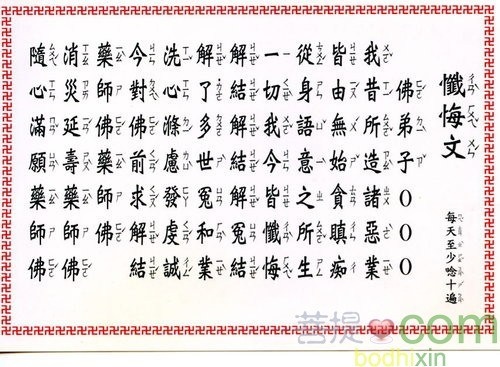 懺悔文
每天至少唸十遍
佛弟子OOO
我昔所造諸惡業
皆由無始貪瞋痴
從身語意之所生
一切我今皆懺悔
解結解結解冤結
解了多世冤和業
洗心滌慮發虔誠
今對佛前求解結
藥師佛藥師佛
消災延壽藥師佛
隨心滿願藥師佛
菩提 com
bodhixin